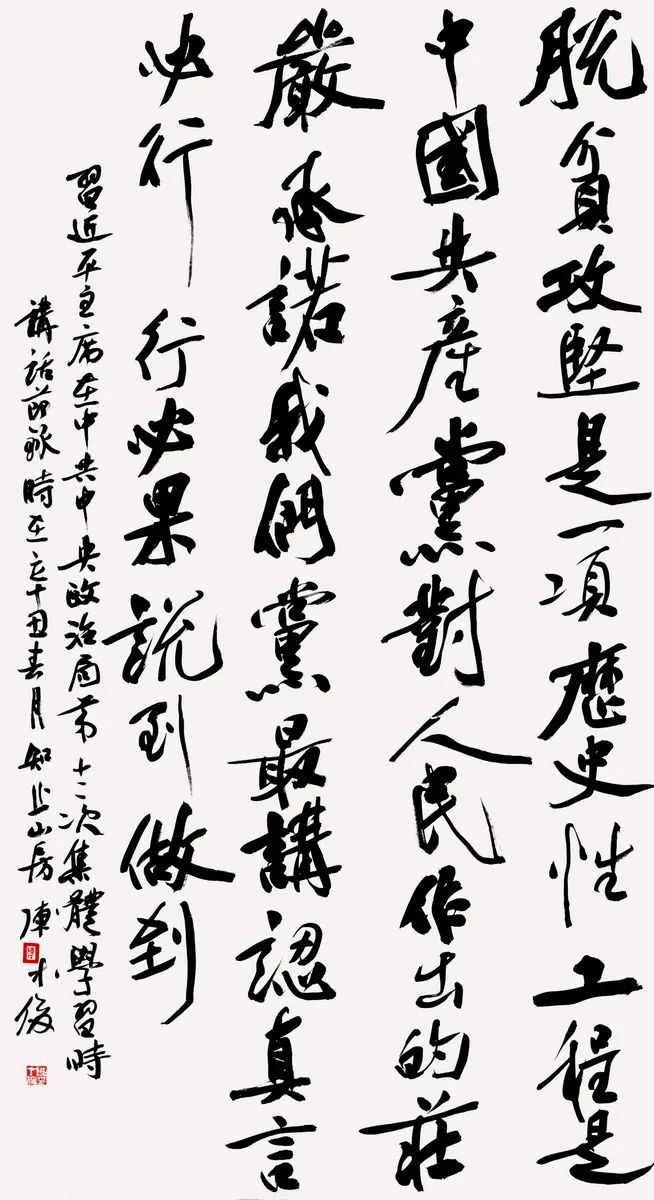 脫貧攻堅是一項歷史性工程是
中國共產黨對人民作出的莊
嚴承諾我們黨最講認真言
必行行必果說到做到
習近平主席在中共中央政治局第十二次集體學習時
講話節錄時在辛丑春月知止山房陳才俊